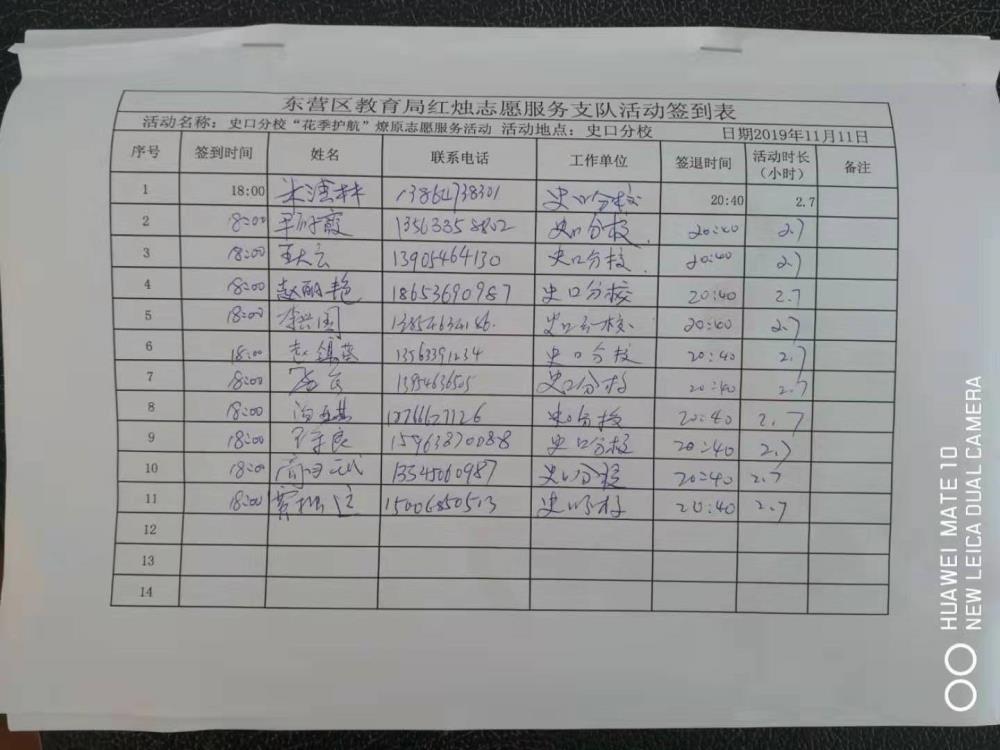 东营区教育局红烛志愿服务支队活动签到表
活动名称：史口分校“花季护航”燎原志愿服务活动 活动地点：史口分校 日期2019年11月11日
序号 签到时间 姓名 联系电话 工作单位 签退时间 活动时长（小时） 备注
1 18:00 13864738301 史口分校 20:40 2.7
2 18:00 13563358802 史口分校 20:40 2.7
3 18:00 王大云 13905464130 史口分校 20:40 2.7
4 18:00 赵丽艳 18653690987 史口分校 20:40 2.7
5 18:00 李兴国 史口分校 20:40 2.7
6 18:00 13563391234 史口分校 20:40 2.7
7 18:00 史口分校 20:40 2.7
8 18:00 史口分校 20:40 2.7
9 18:00 15963870088 史口分校 20:40 2.7
10 18:00 13345060987 史口分校 20:40 2.7
11 18:00 15006850513 史口分校 20:40 2.7
12
13
14
HUAWEI MATE 10
NEW LEICA DUAL CAMERA